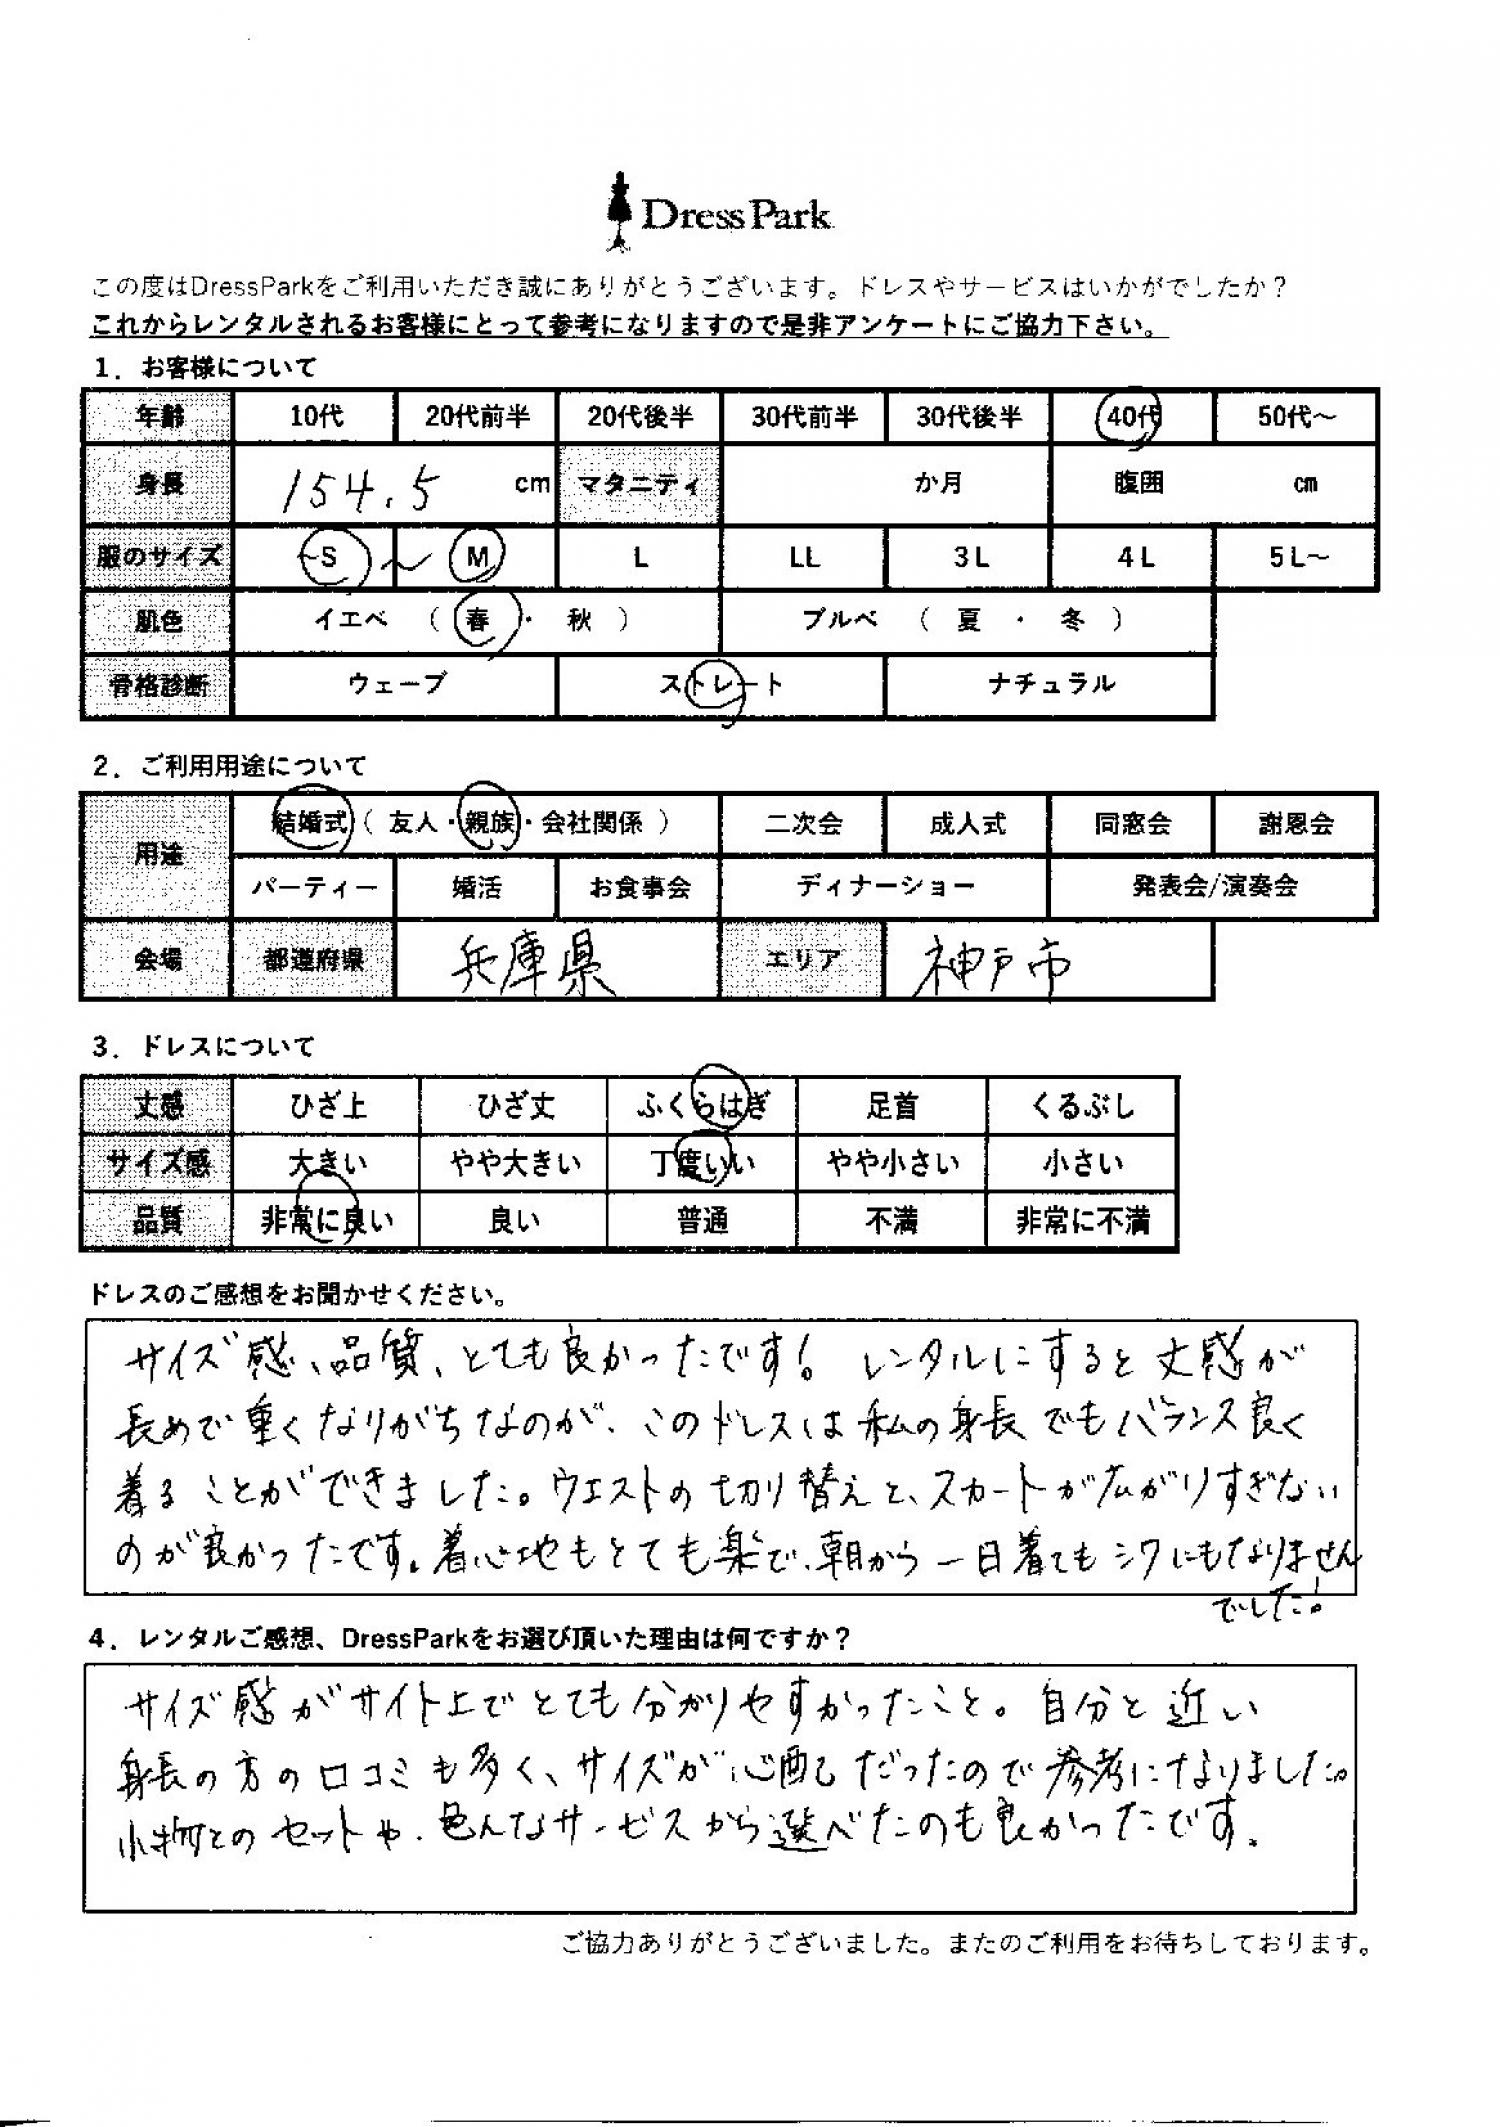 DressPark
この度はDressParkをご利用いただき誠にありがとうございます。ドレスやサービスはいかがでしたか？
これからレンタルされるお客様にとって参考になりますので是非アンケートにご協力下さい。
1．お客様について
年齢 10代 20代前半 20代後半 30代前半 30代後半 40代 50代～
身長 154.5 cm マタニティ か月 腹囲 cm
服のサイズ ~S ～ M L LL 3L 4L 5L～
肌色 イエベ （ 春 ・ 秋 ） ブルベ （ 夏 ・ 冬 ）
骨格診断 ウェーブ ストレート ナチュラル
2．ご利用用途について
用途 結婚式（ 友人・親族・会社関係 ） 二次会 成人式 同窓会 謝恩会
パーティー 婚活 お食事会 ディナーショー 発表会/演奏会
会場 都道府県 兵庫県 エリア 神戸市
3．ドレスについて
丈感 ひざ上 ひざ丈 ふくらはぎ 足首 くるぶし
サイズ感 大きい やや大きい 丁度いい やや小さい 小さい
品質 非常に良い 良い 普通 不満 非常に不満
ドレスのご感想をお聞かせください。
サイズ感、品質、とても良かったです！ レンタルにすると丈感が
長めで重くなりがちなのが、このドレスは私の身長でもバランス良く
着ることができました。ウエストの切り替えと、スカートが広がりすぎない
のが良かったです。着心地もとても楽で、朝から一日着てもシワにもなりません
でした！
4．レンタルご感想、DressParkをお選び頂いた理由は何ですか？
サイズ感がサイト上でとても分かりやすかったこと。自分と近い
身長の方の口コミも多く、サイズが心配だったので参考になりました。
小物とのセットや、色んなサービスから選べたのも良かったです。
ご協力ありがとうございました。またのご利用をお待ちしております。